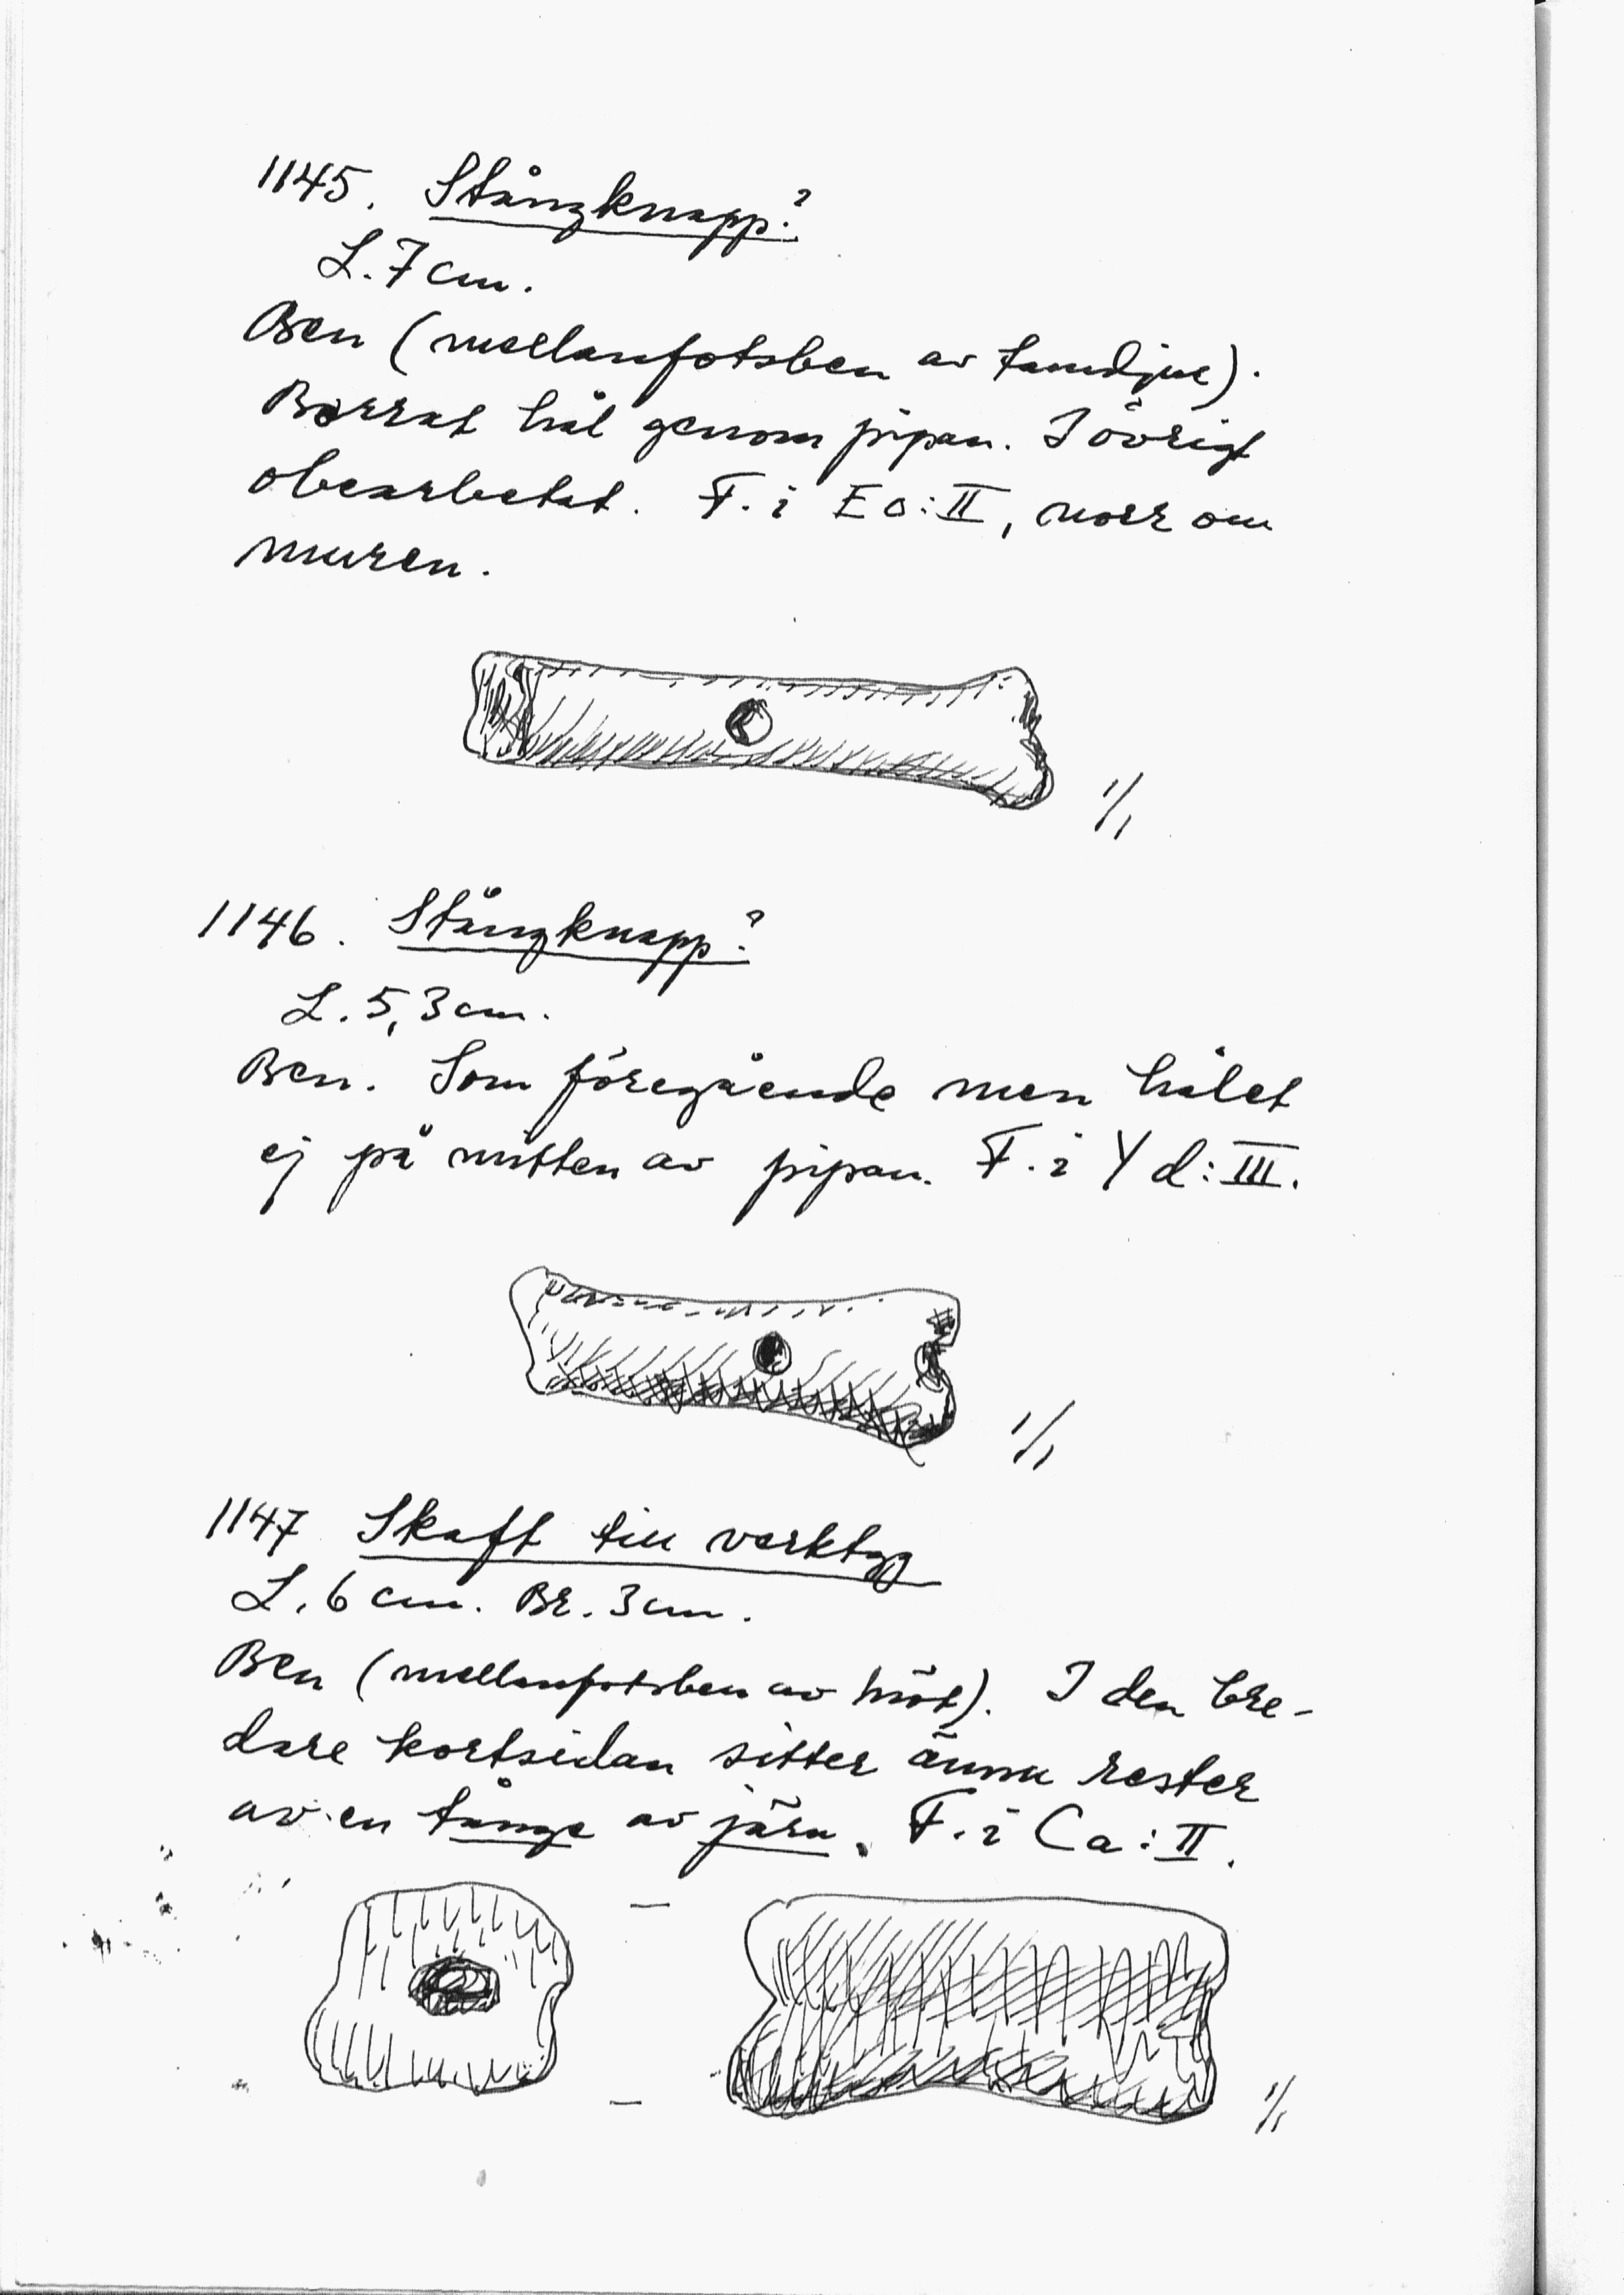 1145. Stångknapp?
L. 7 cm.
Ben (mellanfotsben av tamdjur).
Borrat hål genom pipan. I övrigt
obearbetat. F. i Eo:II, norr om
muren.
1/1
1146. Stångknapp?
L. 5,3 cm.
Ben. Som föregående men hålet
ej på mitten av pipan. F. i Yd:III.
1/1
1147 Skaft till verktyg
L. 6 cm. Br. 3 cm.
Ben (mellanfotsben av nöt). I den bre-
dare kortsidan sitter ännu rester
av en tånge av järn. F. i Ca:II.
1/1